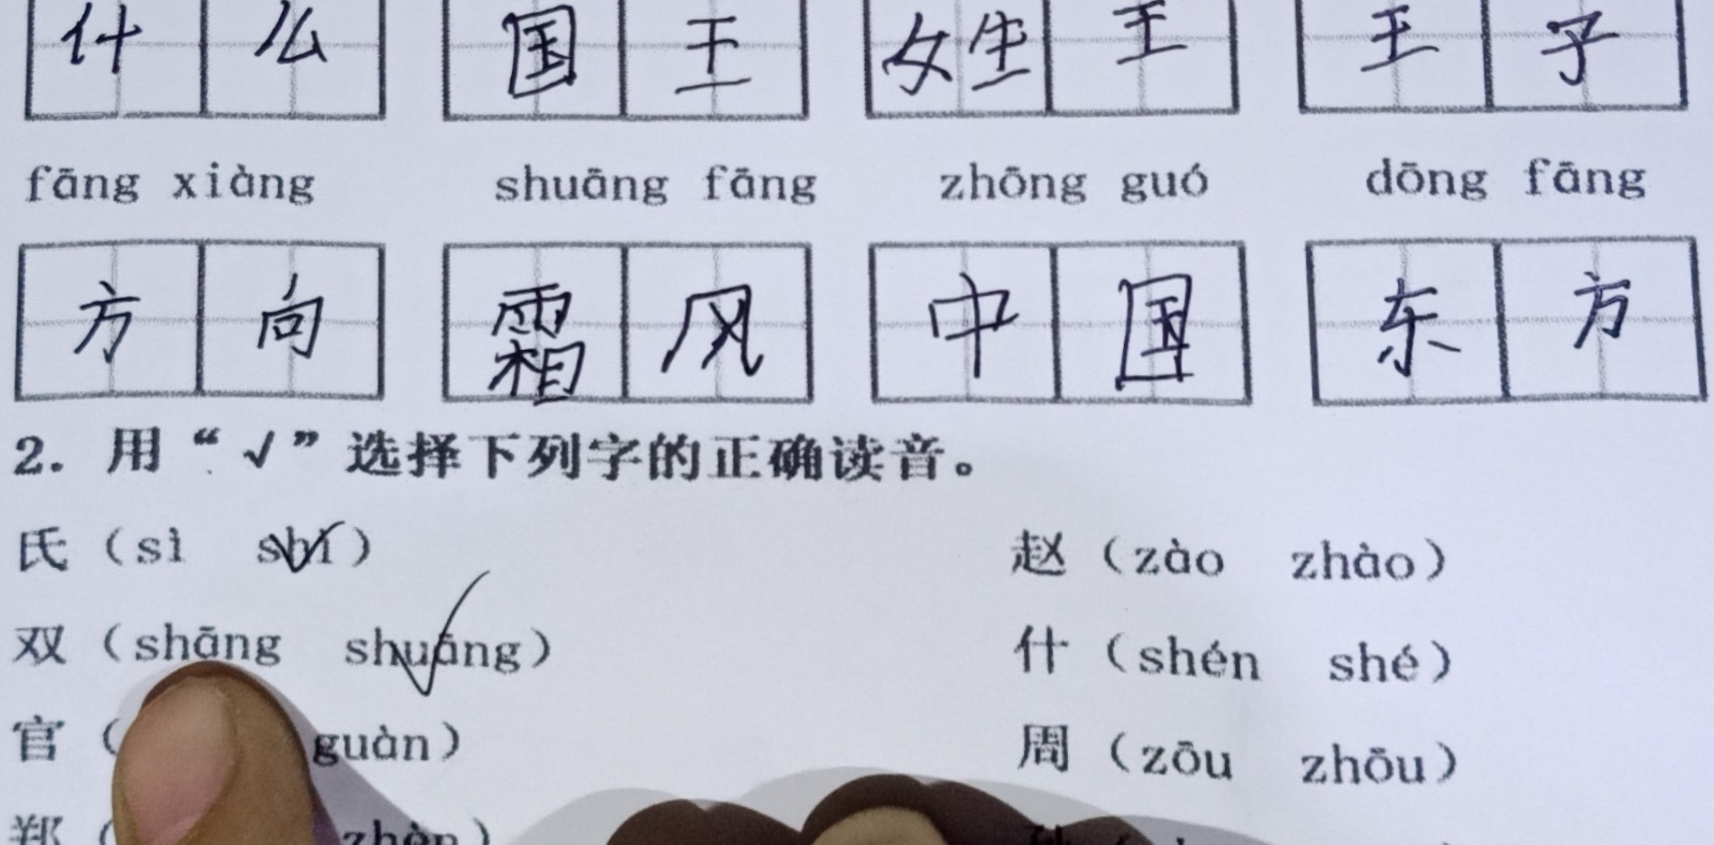 什么 国王 姓王 王子
fāng xiàng shuāng fāng zhōng guó dōng fāng
方向 霜风 中国 东方
2. 用“√”选择下列字的正确读音。
氏（sì shì） 赵（zào zhào）
双（shāng shuāng） 什（shén shé）
官（ guàn） 周（zōu zhōu）
郑（